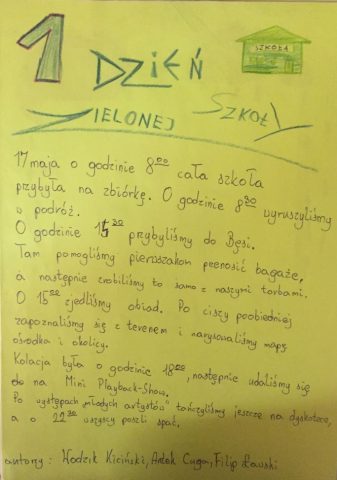 1 DZIEŃ
SZKOŁA
ZIELONEJ SZKOŁY
17 maja o godzinie 8⁰⁰ cała szkoła
przybyła na zbiórkę. O godzinie 8³⁰ wyruszyliśmy
w podróż.
O godzinie 14³⁰ przybyliśmy do Bęsi.
Tam pomogliśmy pierwszakom przenosić bagaże,
a następnie zrobiliśmy to samo z naszymi torbami.
O 15⁰⁰ zjedliśmy obiad. Po ciszy poobiedniej
zapoznaliśmy się z terenem i narysowaliśmy mapę
ośrodka i okolicy.
Kolacja była o godzinie 18⁰⁰, następnie udaliśmy się
na Mini Playback-Show.
Po występach „młodych artystów" tańczyliśmy jeszcze na dyskotece,
a o 22³⁰ wszyscy poszli spać.
autorzy: Kiciński, Antek Cuga, Filip